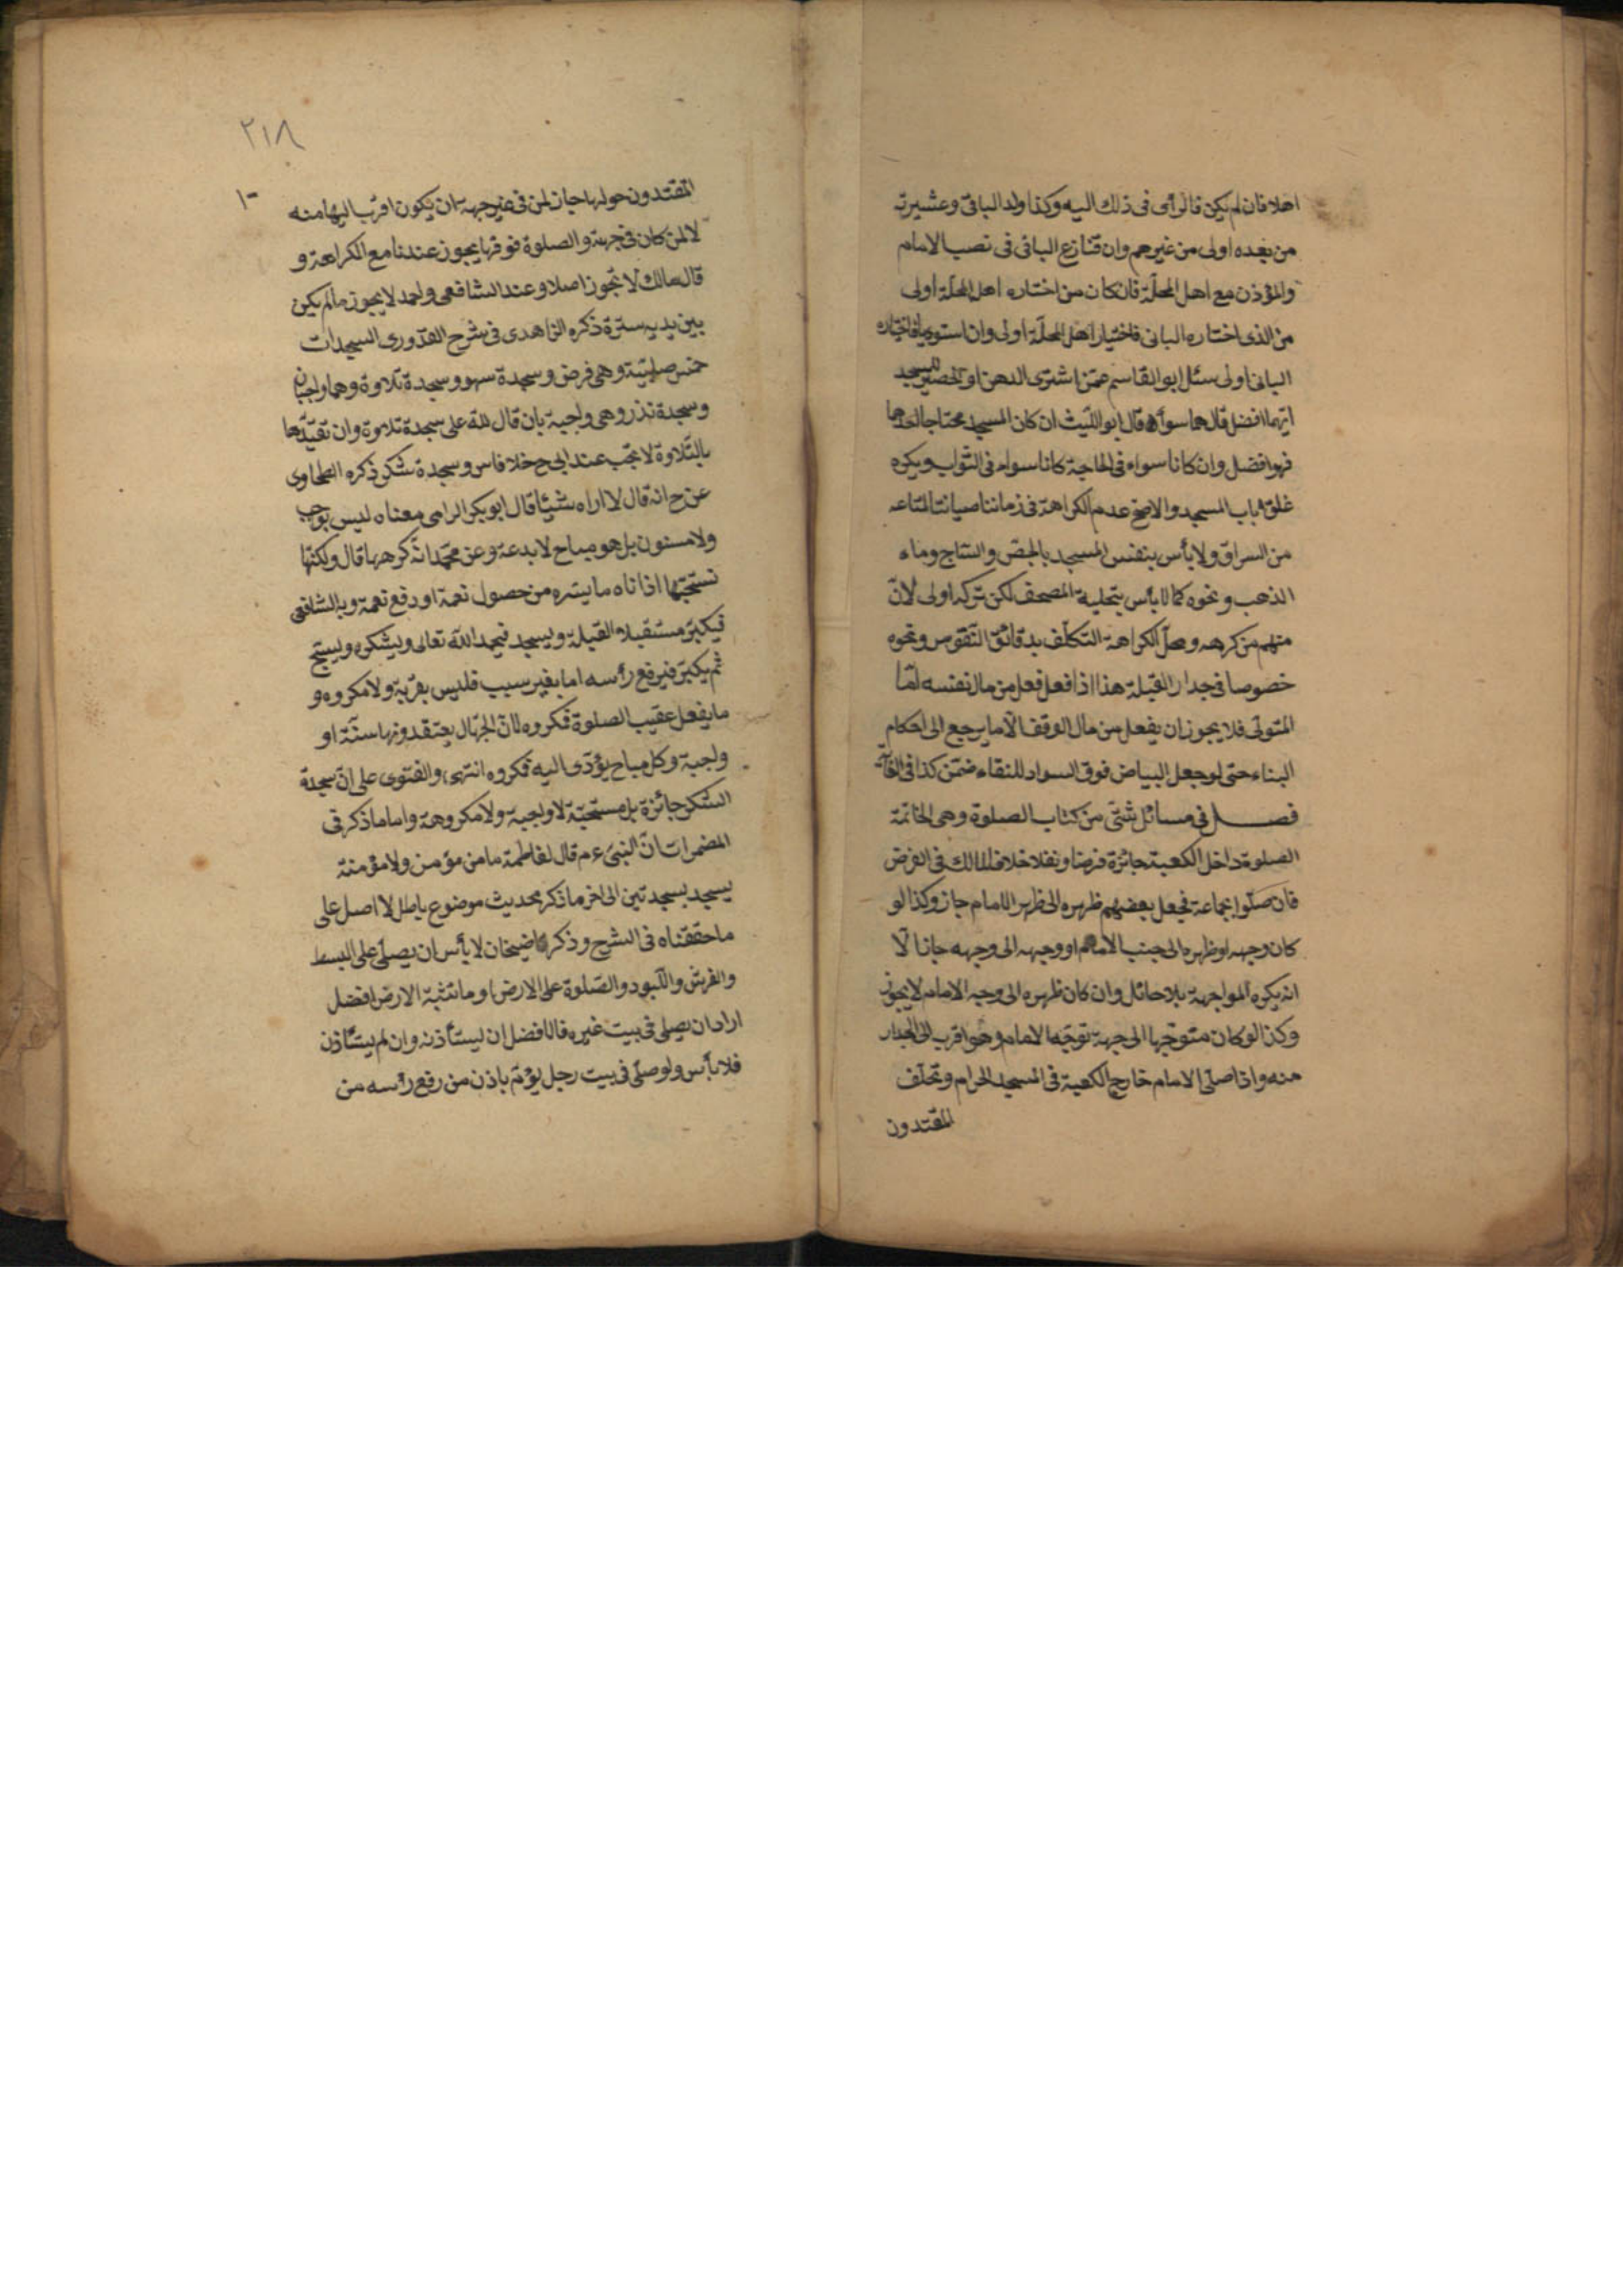 اهلا فان لم يكن فالرأى فى ذلك اليه وكذا ولد البانى وعشيرته
من بعده اولى من غيرهم وان تنازع البانى فى نصب الامام
والمؤذن مع اهل المحلّة فان كان من اختاره اهل المحلّة اولى
من الذى اختاره البانى فاختيار اهل المحلّة اولى وان استويا فاختياره
البانى اولى سئل ابو القاسم عمّن اشترى الدهن او الحصير للمسجد
ايّهما افضل قال هما سواء قال ابو اللّيث ان كان المسجد محتاجا الى احدهما
فهو افضل وان كانا سواء فى الحاجة كانا سواء فى الثواب ويكره
غلق باب المسجد والاصحّ عدم الكراهة فى زماننا صيانة لمتاعه
من السراق ولا بأس بنقش المسجد بالجصّ والسّاج وماء
الذهب ونحوه كما لا بأس بتحلية المصحف لكن تركه اولى لانّ
منهم من كرهه ومحلّ الكراهة التكلّف بدقائق النّقوش ونحوه
خصوصا فى جدار القبلة هذا اذا فعل فعل من مال نفسه امّا
المتولّى فلا يجوز ان يفعل من مال الوقف الّا ما يرجع الى احكام
البناء حتى لو جعل البياض فوق السواد للنقاء ضمن كذا فى الغاية
فصل فى مسائل شتّى من كتاب الصلوة وهى الخاتمة
الصلوة داخل الكعبة جائزة فرضا ونفلا خلافا لمالك فى الفرض
فان صلّوا بجماعة فجعل بعضهم ظهره الى ظهر الامام جاز وكذا لو
كان وجهه او ظهره الى جنب الامام او وجهه الى وجهه جاز الّا
انه يكره المواجهة بلا حائل وان كان ظهره الى وجه الامام لا يجوز
وكذا لو كان متوجّها الى جهة توجّه الامام وهو اقرب الى الجدار
منه واذا صلّى الامام خارج الكعبة فى المسجد الحرام وتحلّف
المقتدون
٢١٨
المقتدون حولها جاز لمن فى غير جهته ان يكون اقرب اليها منه
لا لمن كان فى جهته والصلوة فوقها يجوز عندنا مع الكراهة و
قال مالك لا تجوز اصلا وعند الشافعى واحمد لا يجوز ما لم يكن
بين يديه سترة ذكره الزاهدى فى شرح القدورى السجدات
خمس صلبيّة وهى فرض وسجدة سهو وسجدة تلاوة وهما واجبان
وسجدة نذر وهى واجبة بان قال لله على سجدة تلاوة وان تقيّدها
بالتّلاوة لا تجب عند ابى ح خلافا س وسجدة شكر ذكره الطحاوى
عن ح انه قال لا اراه شيئا قال ابو بكر الرازى معناه ليس بوجب
ولا مسنون بل هو مباح لا بدعة وعن محمّد انّه كرهها قال ولكنّها
نستحبّها اذا اتاه ما يسره من حصول نعمة او دفع نعمة وبه الشافعى
فيكبّر مستقبلا القبلة ويسجد فيحمد الله تعالى ويشكره ويسبّح
ثم يكبّر فيرفع رأسه اما بغير سبب فليس بقربة ولا مكروه و
ما يفعل عقيب الصلوة فمكروه لانّ الجهّال يعتقدونها سنّة او
واجبة وكل مباح يؤدّى اليه فمكروه انتهى والفتوى على انّ سجدة
الشكر جائزة بل مستحبّة لا واجبة ولا مكروهة واما ما ذكر فى
المضمرات انّ النبىّ عم قال لفاطمة ما من مؤمن ولا مؤمنة
يسجد بسجدتين الى اخر ما ذكر بحديث موضوع باطل لا اصل على
ما حققناه فى الشرح وذكر قاضيخان لا بأس ان يصلّى على البسط
والفرش واللّبود والصّلوة على الارض او ما تنبته الارض افضل
اراد ان يصلى فى بيت غيره فالافضل ان يستأذنه وان لم يستأذن
فلا بأس ولو صلّى فى بيت رجل يؤمّ باذن من رفع رأسه من